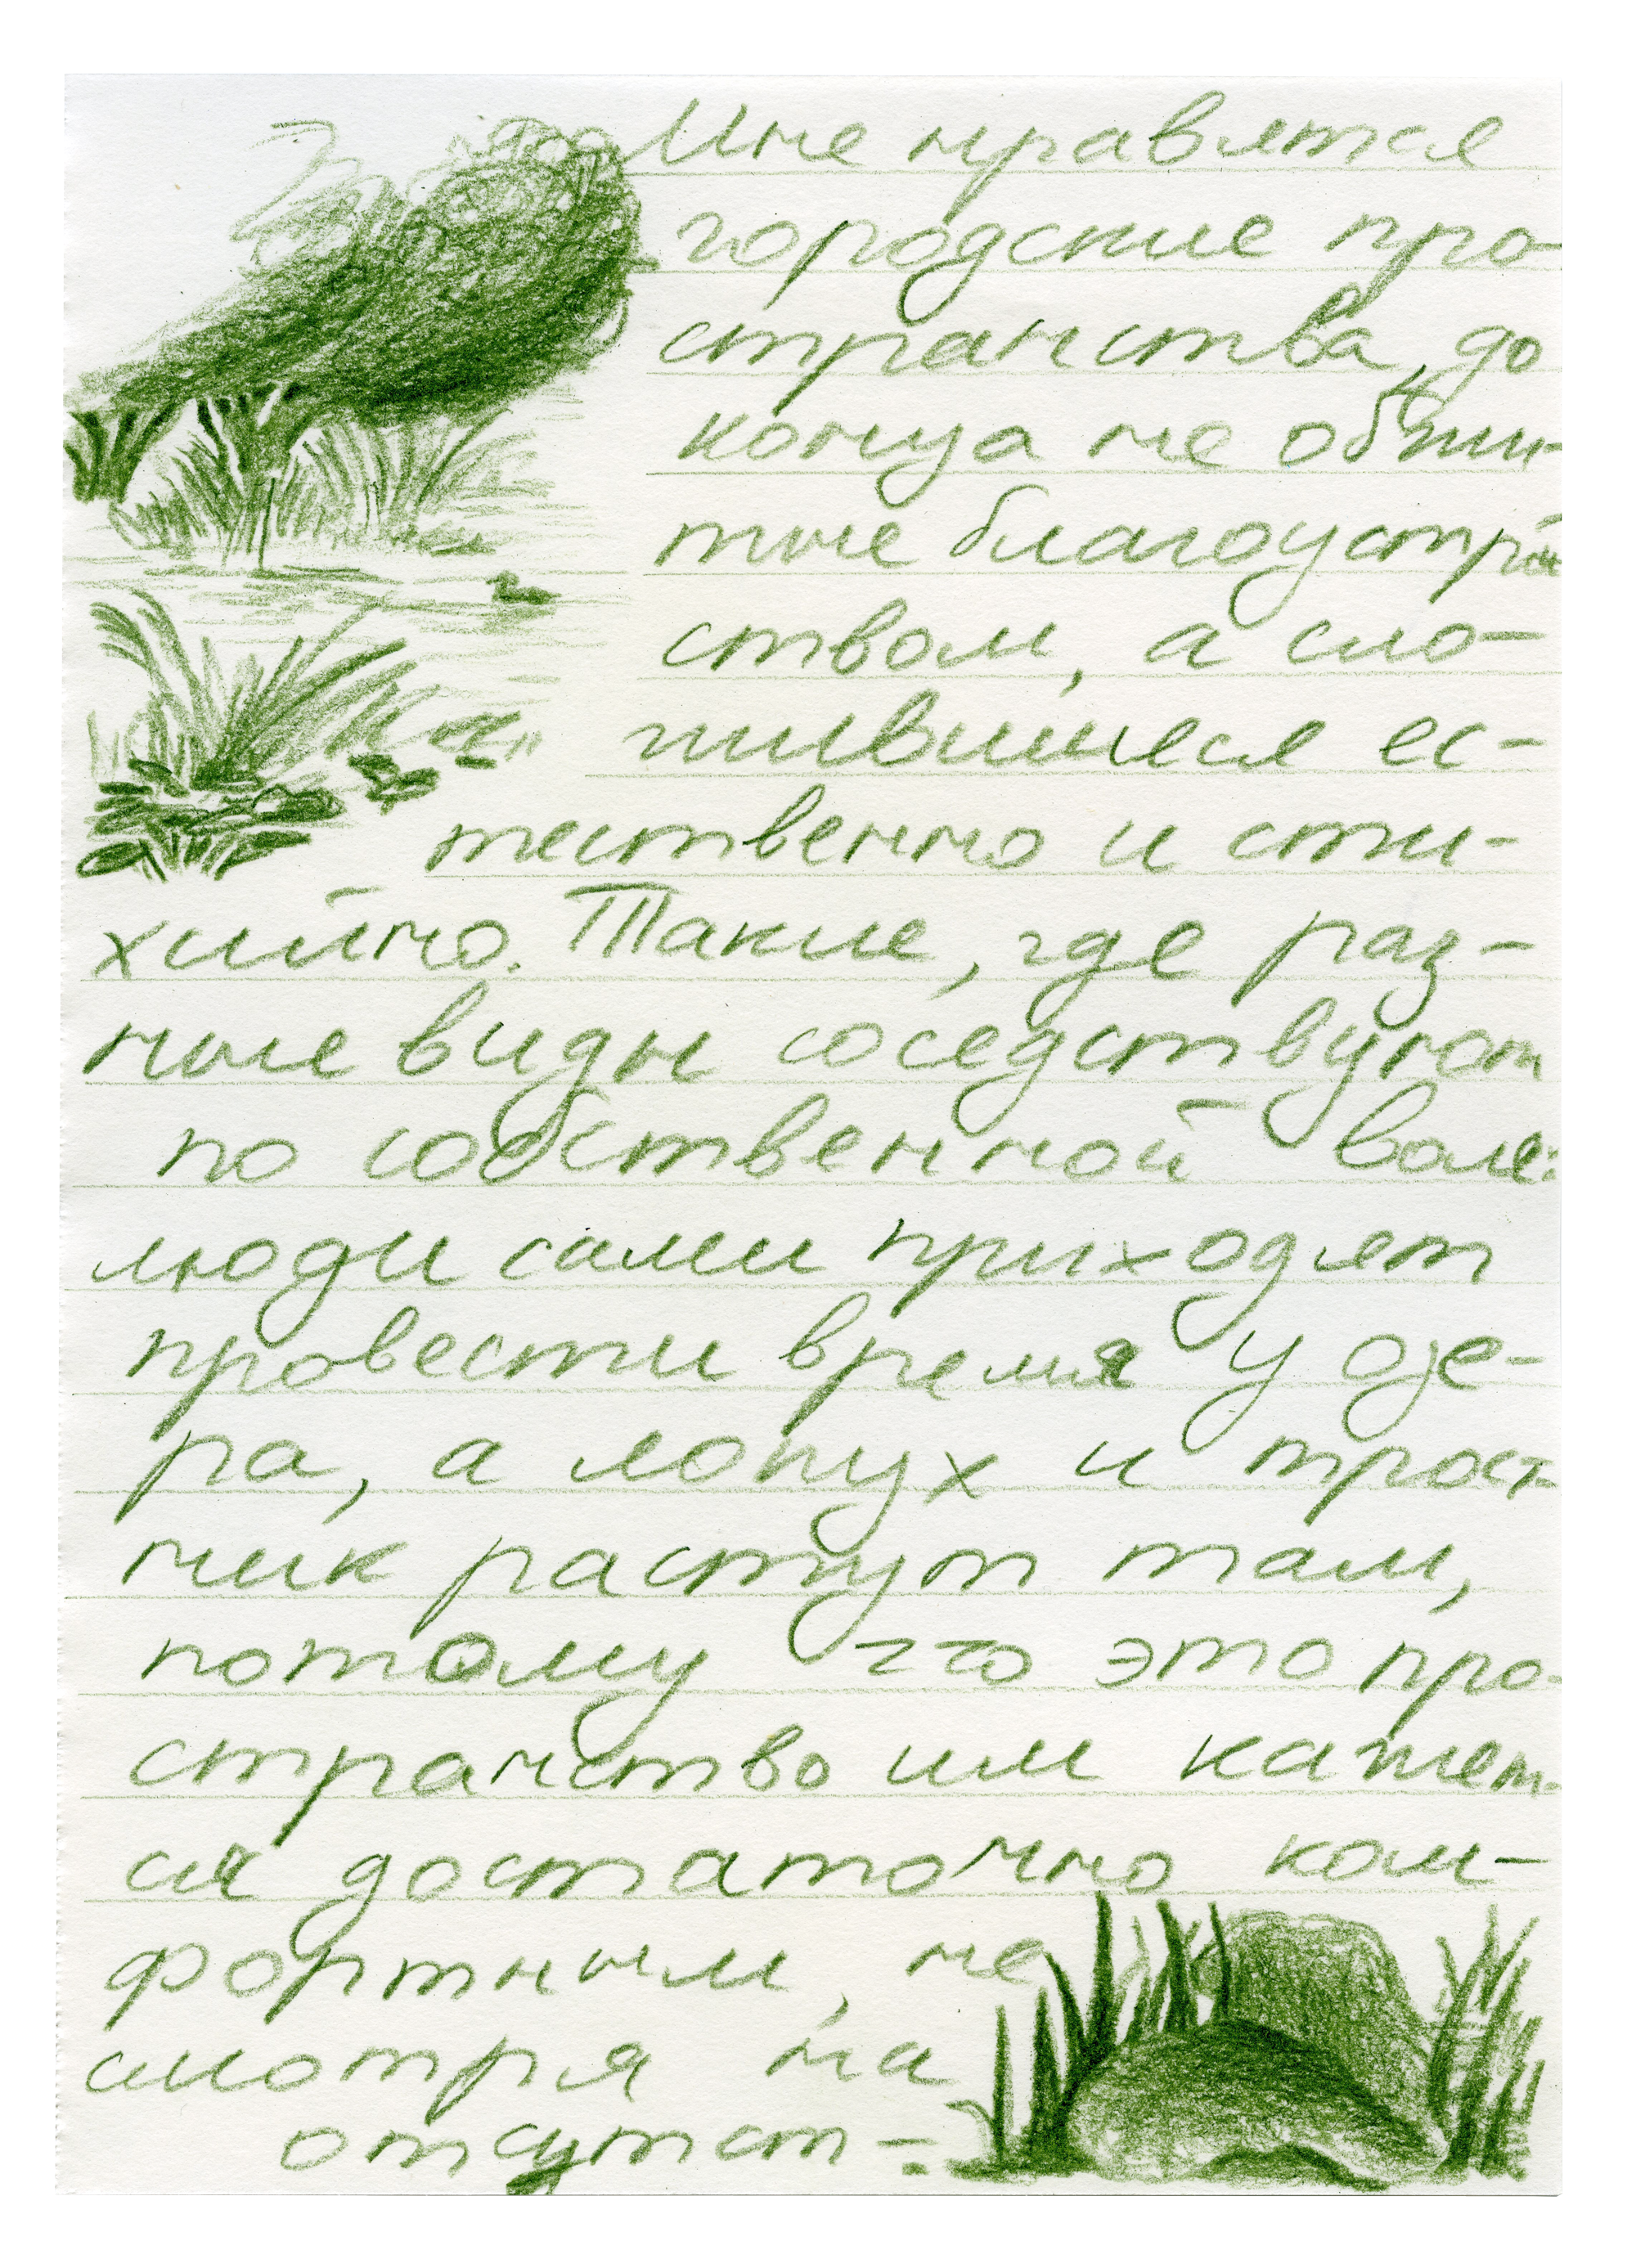 Мне нравятся
городские про-
странства, до
конца не обжи-
тые благоустрой
ством, а сло-
жившиеся ес-
тественно и сти-
хийно. Такие, где раз-
ные виды соседствуют
по собственной воле:
люди сами приходят
провести время у озе-
ра, а лопух и трост-
ник растут там,
потому что это про-
странство им кажет-
ся достаточно ком-
фортным, не
смотря на
отсутст-